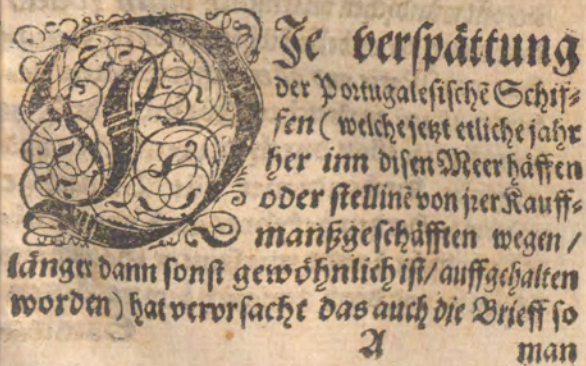 DJe verspättung
der Portugalesischē Schif⸗
fen ( welche jetzt etliche jahr
her inn disen Meerhäffen
oder stellinē von jrer Kauff⸗
manßgeschäfften wegen /
länger dann sonst gewöhnlich ist / auffgehalten
worden ) hat vervrsacht das auch die Brieff so
A man